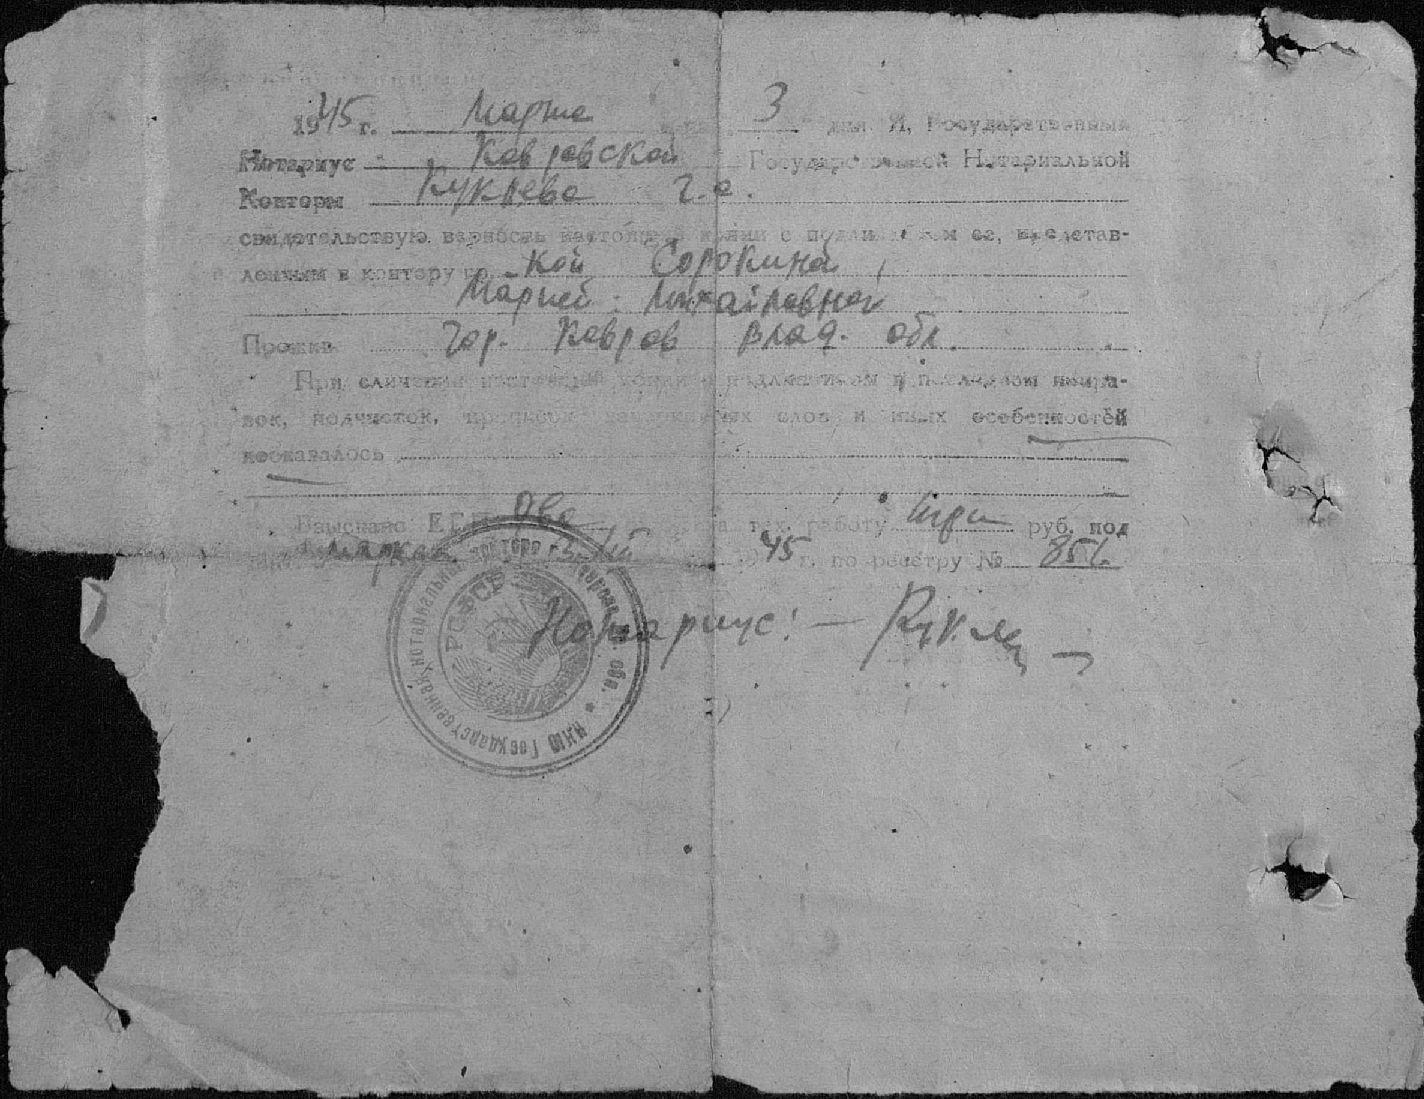 1945 г. Марта 3 дня Я, Государственный
Нотариус Ковровской Государственной Нотариальной
Конторы Куклева
свидетельствую верность настоящей копии с подлинником ее, представ-
ленным в контору гр. кой Сорокиной
Марией Михайловной
Прожив. Гор. Ковров Влад. обл.
При сличении настоящей копии с подлинником в последнем попра-
вок, подчисток, приписок зачеркнутых слов и иных особенностей
неоказалось
Взыскано ЕГП два за тех. работу три руб. под
марками 1945 г. по реестру № 851.
Нотариус: —
РСФСР
НКЮ Государственная нотариальная контора г. Коврова обл.